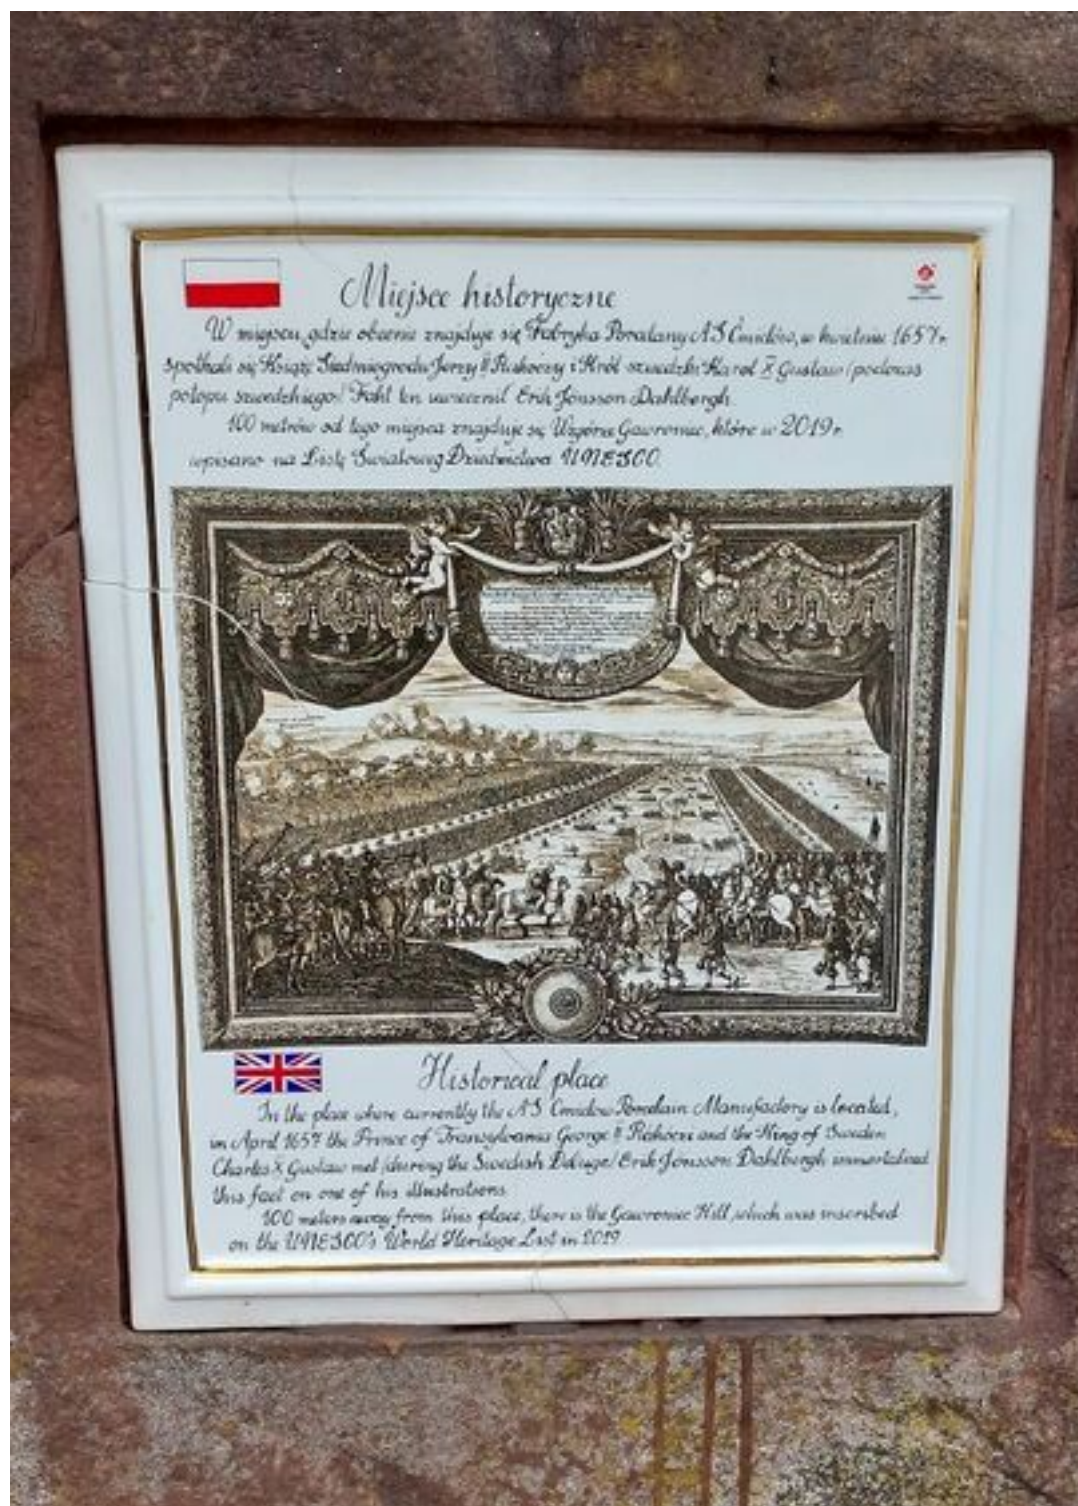 Miejsce historyczne
W miejscu, gdzie obecnie znajduje się Fabryka Porcelany AS Ćmielów, w kwietniu 1657r.
spotkali się Książę Siedmiogrodu Jerzy II Rakoczy i Król szwedzki Karol X Gustaw (podczas
potopu szwedzkiego) Fakt ten uwiecznił Erik Jönsson Dahlbergh.
100 metrów od tego miejsca znajduje się Wzgórze Gawroniec, które w 2019 r.
wpisano na Listę Światowego Dziedzictwa UNESCO.
Historical place
In the place where currently the AS Ćmielów Porcelain Manufactory is located,
in April 1657 the Prince of Transylvania George II Rakoczi and the King of Sweden
Charles X Gustaw met (during the Swedish Deluge) Erik Jönsson Dahlbergh immortalised
this fact on one of his illustrations
100 meters away from this place, there is the Gawroniec Hill, which was inscribed
on the UNESCO's World Heritage List in 2019